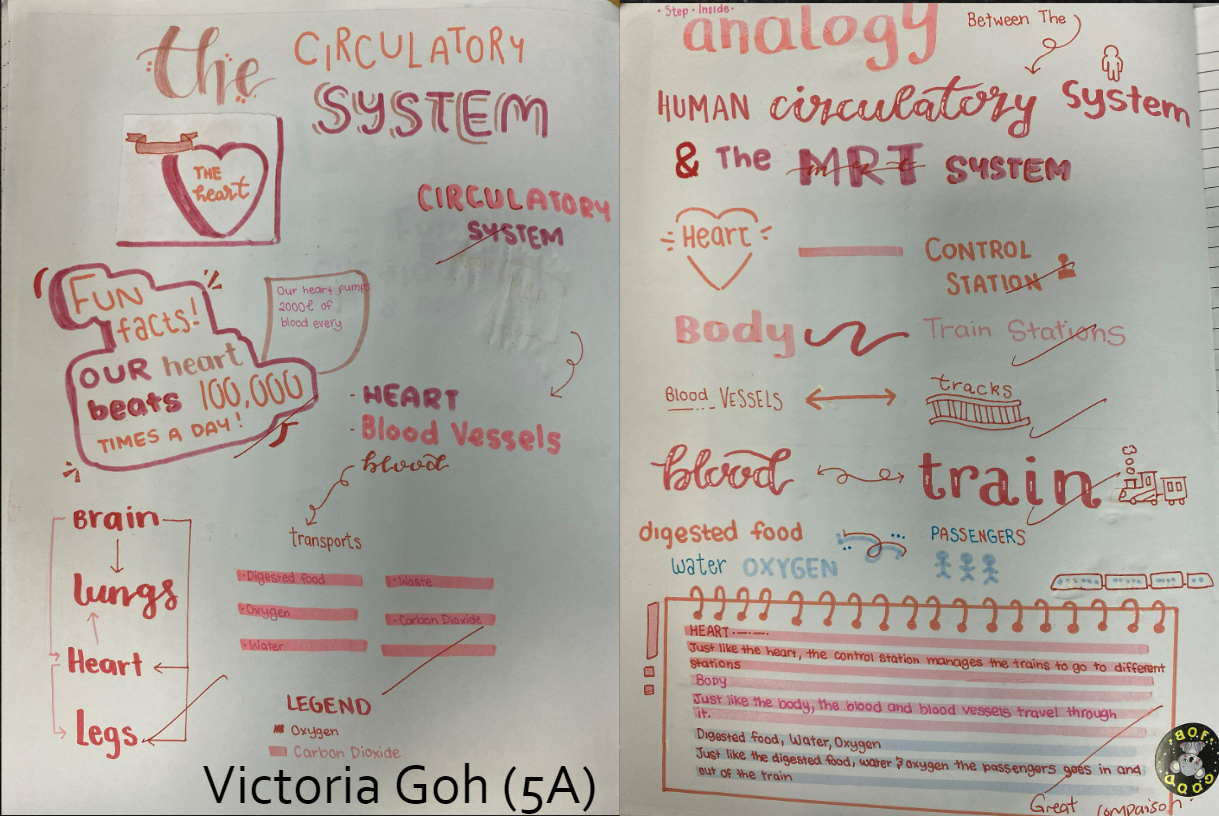 the CIRCULATORY
SYSTEM
THE
heart
CIRCULATORY
SYSTEM
FUN
facts!
OUR heart
beats 100,000
TIMES A DAY!
Our heart pumps
2000l of
blood every
- HEART
- Blood Vessels
- blood
transports
• Digested food
• Waste
• Oxygen
• Carbon Dioxide
• Water
Brain
Lungs
Heart
Legs
LEGEND
Oxygen
Carbon Dioxide
Victoria Goh (5A)
• Step • Inside •
analogy Between The
HUMAN circulatory System
& The MRT SYSTEM
Heart CONTROL
STATION
Body Train Stations
Blood VESSELS tracks
blood train
digested food PASSENGERS
water OXYGEN
HEART
Just like the heart, the control station manages the trains to go to different
stations
Body
Just like the body, the blood and blood vessels travel through
it.
Digested food, Water, Oxygen
Just like the digested food, water & oxygen the passengers goes in and
out of the train
Great comparison!
B.O.F.
GOOD